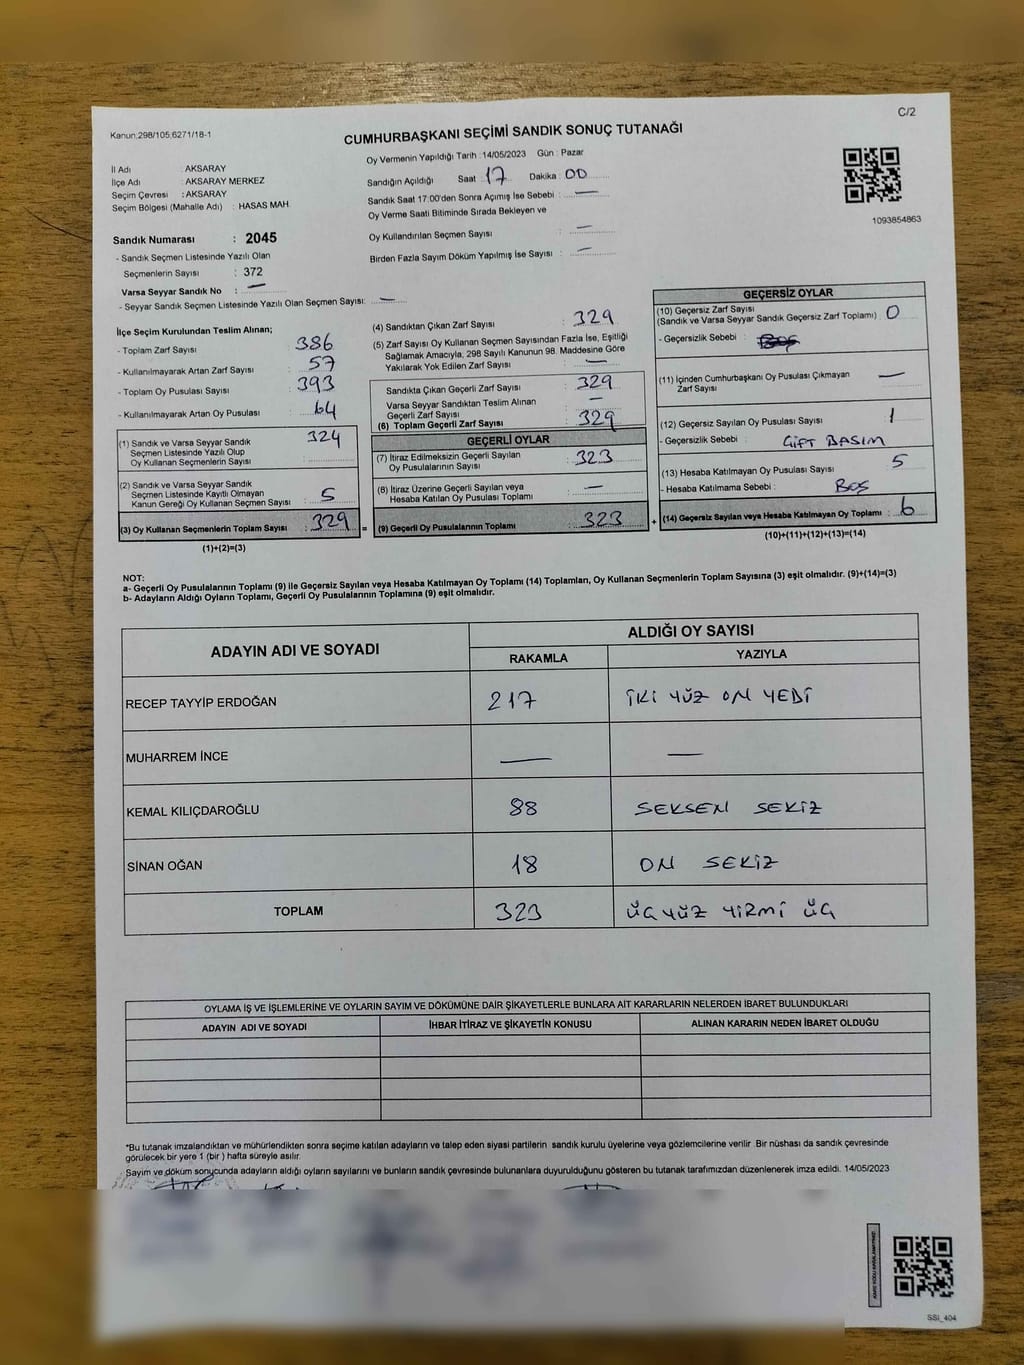 C/2
Kanun;298/105;6271/18-1
CUMHURBAŞKANI SEÇİMİ SANDIK SONUÇ TUTANAĞI
Oy Vermenin Yapıldığı Tarih :14/05/2023 Gün : Pazar
İl Adı : AKSARAY
İlçe Adı : AKSARAY MERKEZ
Seçim Çevresi : AKSARAY
Seçim Bölgesi (Mahalle Adı) : HASAS MAH.
Sandığın Açıldığı Saat 17 Dakika 00
Sandık Saat 17:00'den Sonra Açımış İse Sebebi : —
Oy Verme Saati Bitiminde Sırada Bekleyen ve
Oy Kullandırılan Seçmen Sayısı : —
Birden Fazla Sayım Döküm Yapılmış İse Sayısı : —
1093854863
Sandık Numarası : 2045
- Sandık Seçmen Listesinde Yazılı Olan
Seçmenlerin Sayısı : 372
Varsa Seyyar Sandık No : —
- Seyyar Sandık Seçmen Listesinde Yazılı Olan Seçmen Sayısı: —
İlçe Seçim Kurulundan Teslim Alınan;
- Toplam Zarf Sayısı : 386
- Kullanılmayarak Artan Zarf Sayısı : 57
- Toplam Oy Pusulası Sayısı : 393
- Kullanılmayarak Artan Oy Pusulası : 64
(1) Sandık ve Varsa Seyyar Sandık 324
Seçmen Listesinde Yazılı Olup
Oy Kullanan Seçmenlerin Sayısı :
(2) Sandık ve Varsa Seyyar Sandık
Seçmen Listesinde Kayıtlı Olmayan
Kanun Gereği Oy Kullanan Seçmen Sayısı : 5
(3) Oy Kullanan Seçmenlerin Toplam Sayısı : 329 =
(1)+(2)=(3)
(4) Sandıktan Çıkan Zarf Sayısı : 329
(5) Zarf Sayısı Oy Kullanan Seçmen Sayısından Fazla İse, Eşitliği
Sağlamak Amacıyla, 298 Sayılı Kanunun 98. Maddesine Göre
Yakılarak Yok Edilen Zarf Sayısı : —
Sandıkta Çıkan Geçerli Zarf Sayısı : 329
Varsa Seyyar Sandıktan Teslim Alınan
Geçerli Zarf Sayısı : —
(6) Toplam Geçerli Zarf Sayısı : 329
GEÇERLİ OYLAR
(7) İtiraz Edilmeksizin Geçerli Sayılan
Oy Pusulalarının Sayısı : 323
(8) İtiraz Üzerine Geçerli Sayılan veya
Hesaba Katılan Oy Pusulası Toplamı : —
(9) Geçerli Oy Pusulalarının Toplamı : 323 +
GEÇERSİZ OYLAR
(10) Geçersiz Zarf Sayısı
(Sandık ve Varsa Seyyar Sandık Geçersiz Zarf Toplamı) : 0
- Geçersizlik Sebebi :
(11) İçinden Cumhurbaşkanı Oy Pusulası Çıkmayan
Zarf Sayısı : —
(12) Geçersiz Sayılan Oy Pusulası Sayısı : 1
- Geçersizlik Sebebi : ÇİFT BASIM
(13) Hesaba Katılmayan Oy Pusulası Sayısı : 5
- Hesaba Katılmama Sebebi : BOŞ
(14) Geçersiz Sayılan veya Hesaba Katılmayan Oy Toplamı : 6
(10)+(11)+(12)+(13)=(14)
NOT:
a- Geçerli Oy Pusulalarının Toplamı (9) ile Geçersiz Sayılan veya Hesaba Katılmayan Oy Toplamı (14) Toplamları, Oy Kullanan Seçmenlerin Toplam Sayısına (3) eşit olmalıdır. (9)+(14)=(3)
b- Adayların Aldığı Oyların Toplamı, Geçerli Oy Pusulalarının Toplamına (9) eşit olmalıdır.
ADAYIN ADI VE SOYADI ALDIĞI OY SAYISI
RAKAMLA YAZIYLA
RECEP TAYYİP ERDOĞAN 217 İKİ YÜZ ON YEDİ
MUHARREM İNCE — —
KEMAL KILIÇDAROĞLU 88 SEKSEN SEKİZ
SİNAN OĞAN 18 ON SEKİZ
TOPLAM 323 ÜÇ YÜZ YİRMİ ÜÇ
OYLAMA İŞ VE İŞLEMLERİNE VE OYLARIN SAYIM VE DÖKÜMÜNE DAİR ŞİKAYETLERLE BUNLARA AİT KARARLARIN NELERDEN İBARET BULUNDUKLARI
ADAYIN ADI VE SOYADI İHBAR İTİRAZ VE ŞİKAYETİN KONUSU ALINAN KARARIN NEDEN İBARET OLDUĞU
*Bu tutanak imzalandıktan ve mühürlendikten sonra seçime katılan adayların ve talep eden siyasi partilerin sandık kurulu üyelerine veya gözlemcilerine verilir .Bir nüshası da sandık çevresinde
görülecek bir yere 1 (bir ) hafta süreyle asılır.
Sayım ve döküm sonucunda adayların aldığı oyların sayılarını ve bunların sandık çevresinde bulunanlara duyurulduğunu gösteren bu tutanak tarafımızdan düzenlenerek imza edildi. 14/05/2023
SSİ_404